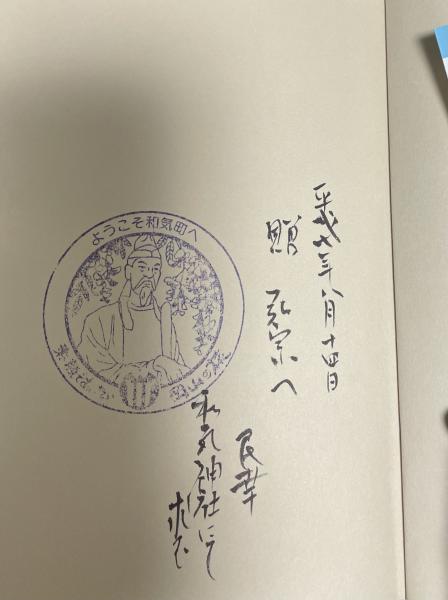 平成七年八月十四日
贈 弘宗へ
民幸
和気神社にて
ようこそ和気町へ